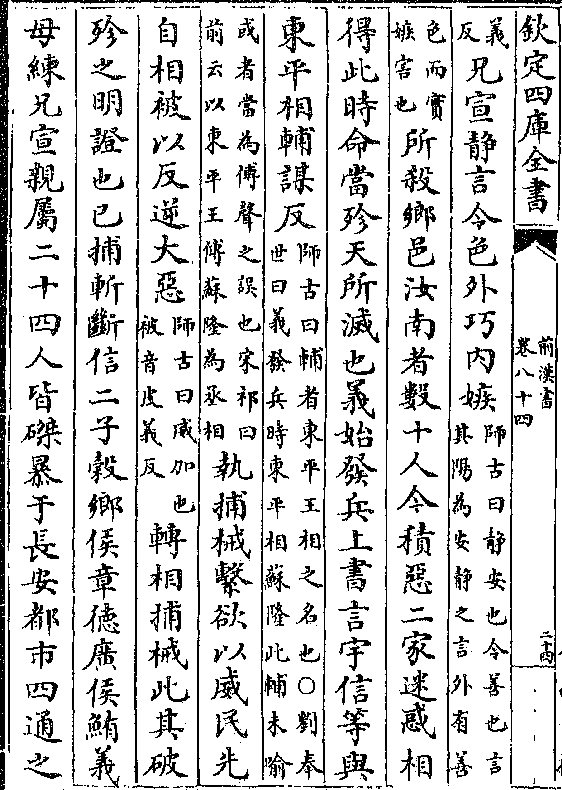 欽定四庫全書
前漢書
卷八十四
二十四
義
反
兄宣静言令色外巧内嫉
師古曰静安也令善也言
其陽為安静之言外有善
色而實
嫉害也
所殺鄉邑汝南者數十人今積惡二家迷惑相
得此時命當殄天所滅也義始發兵上書言宇信等與
東平相輔謀反
師古曰輔者東平王相之名也○劉奉
世曰義發兵時東平相蘇隆此輔未喻
或者當為傅聲之誤也宋祁曰
前云以東平王傅蘇隆為丞相
執捕械繫欲以威民先
自相被以反逆大惡
師古曰威加也
被音皮義反
轉相捕械此其破
殄之明證也已捕斬斷信二子榖鄉侯章徳廣侯鮪義
母練兄宣親屬二十四人皆磔暴于長安都市四通之